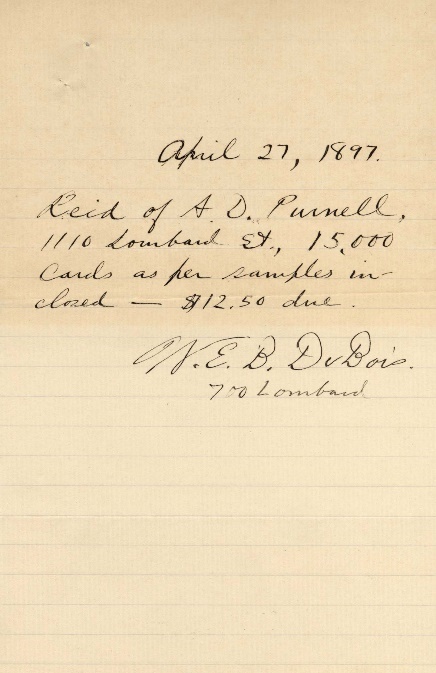 April 27, 1897.
Recd of A. D. Purnell,
1110 Lombard St., 15,000
cards as per samples in-
closed — $12.50 due.
W. E. B. DuBois.
700 Lombard